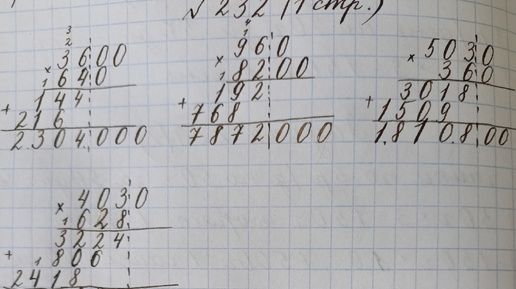 № 232 (1 стр.)
3
2
3600
× 640
1
144
+ 216
2.304.000
4
1
960
× 8200
1
192
+ 768
7872000
5030
× 360
3018
+ 1509
1.810.800
4030
× 628
1
3224
+ 806
1
2418